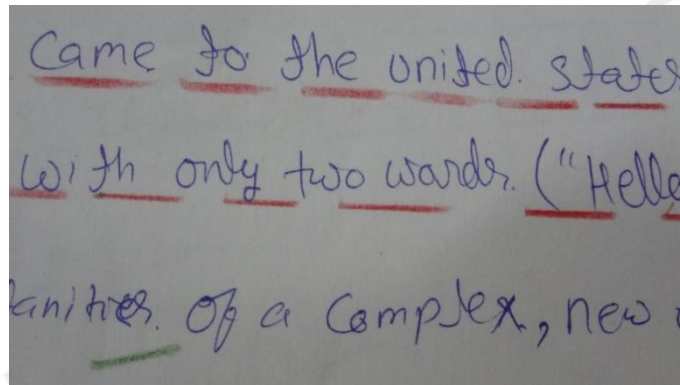 Came to the united. states
with only two words. ("Hello
of a Complex, new